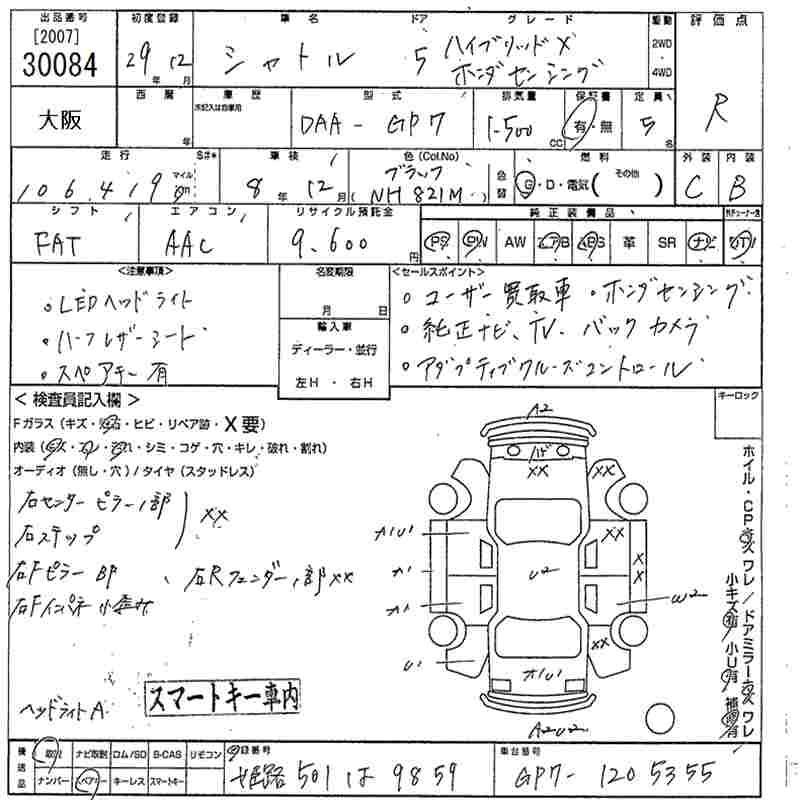 出品番号 初度登録 車名 ドア グレード 駆動 評価点
[2007]
30084 29年 12月 シャトル 5 ハイブリッドX ホンダセンシング 2WD 4WD R
大阪 西暦 年 車歴 未記入は自家用 型式 DAA-GP7 排気量 1500 CC 保証書 有・無 定員 5名
走行 S#* 車検 色(Col.No) 燃料 外装 内装
106,419 マイル km 8年 12月 ブラック (NH821M) 色替 G・D・電気( その他 ) C B
シフト エアコン リサイクル預託金 純正装備品
FAT AAC 9,600円 PS PW AW エアB ABS 革 SR ナビ TV
<注意事項> 名変期限 <セールスポイント>
・LEDヘッドライト 月 日 ・ユーザー買取車 ・ホンダセンシング
・ハーフレザーシート 輸入車 ・純正ナビ、TV、バックカメラ
・スペアキー有 ディーラー・並行 ・アダプティブクルーズコントロール
左H・右H
<検査員記入欄> キーロック
Fガラス(キズ・飛石・ヒビ・リペア跡・X要)
内装(キズ・スレ・汚れ・シミ・コゲ・穴・キレ・破れ・割れ)
オーディオ(無し・穴)/タイヤ(スタッドレス)
右センターピラー1部
右ステップ XX
右Fピラー BP 、右Rフェンダー1部XX
右Fインパネ
ヘッドライトA
スマートキー車内
A2
XX XX
A1U1 XX
A1 U2 X X
A1 W2
U1 XX
A1U1
A2U2
ホイル・CPキズ ワレ/ドアミラーキズ ワレ
小キズ有 小U有 補修有
後送品 取説 ナビ取説 ロム/SD B-CAS リモコン 登録番号 車台番号
ナンバー スペアキー キーレス スマートキー 姫路 501 は 9859 GP7-1205355